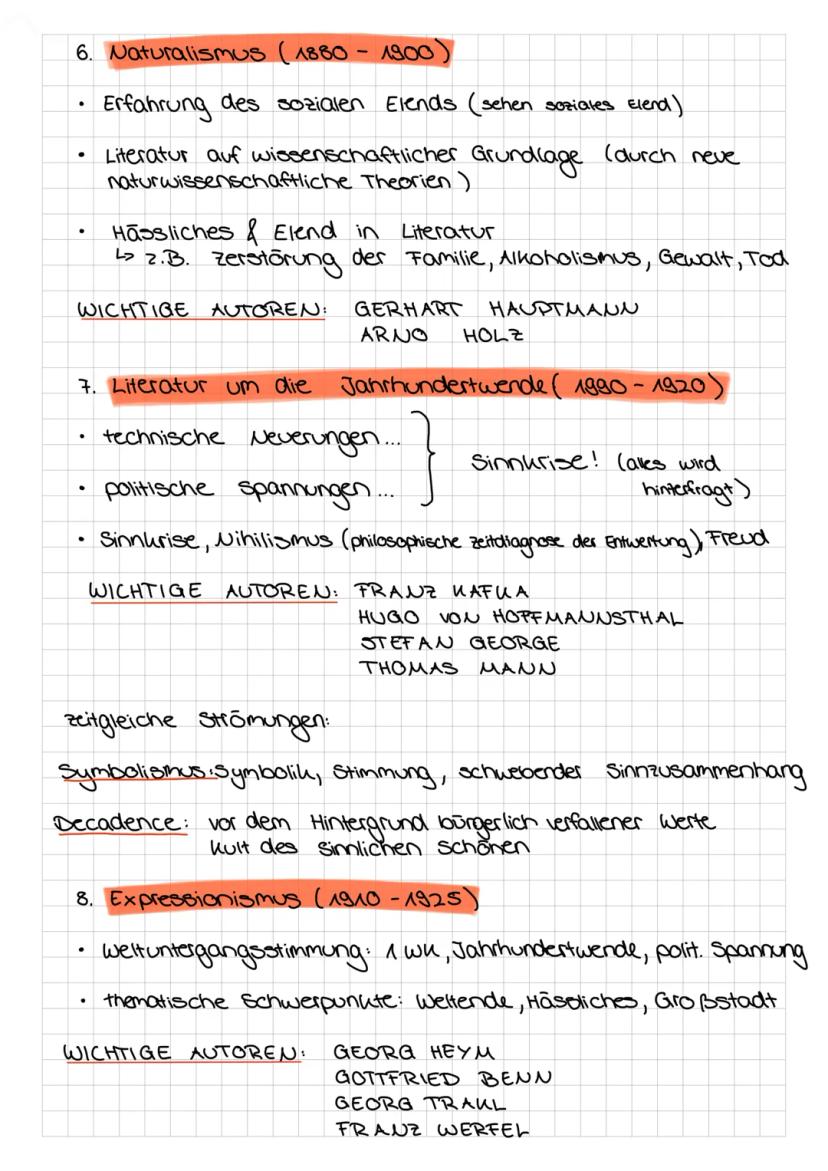 6. Naturalismus (1880 - 1900)
• Erfahrung des sozialen Elends (sehen soziales Elend)
• Literatur auf wissenschaftlicher Grundlage (durch neue
naturwissenschaftliche Theorien)
• Hässliches & Elend in Literatur
↳ z.B. Zerstörung der Familie, Alkoholismus, Gewalt, Tod
WICHTIGE AUTOREN: GERHART HAUPTMANN
ARNO HOLZ
7. Literatur um die Jahrhundertwende (1890 - 1920)
• technische Neuerungen...
Sinnkrise! (alles wird
• politische Spannungen...
hinterfragt)
• Sinnkrise, Nihilismus (philosophische Zeitdiagnose der Entwertung), Freud
WICHTIGE AUTOREN: FRANZ KAFKA
HUGO VON HOFFMANNSTHAL
STEFAN GEORGE
THOMAS MANN
zeitgleiche Strömungen:
Symbolismus: Symbolik, Stimmung, schwebender Sinnzusammenhang
Decadence: vor dem Hintergrund bürgerlich verfallener Werte
Kult des sinnlichen Schönen
8. Expressionismus (1910 - 1925)
• Weltuntergangsstimmung: 1 WK, Jahrhundertwende, polit. Spannung
• thematische Schwerpunkte: Weltende, Hässliches, Großstadt
WICHTIGE AUTOREN: GEORG HEYM
GOTTFRIED BENN
GEORG TRAKL
FRANZ WERFEL